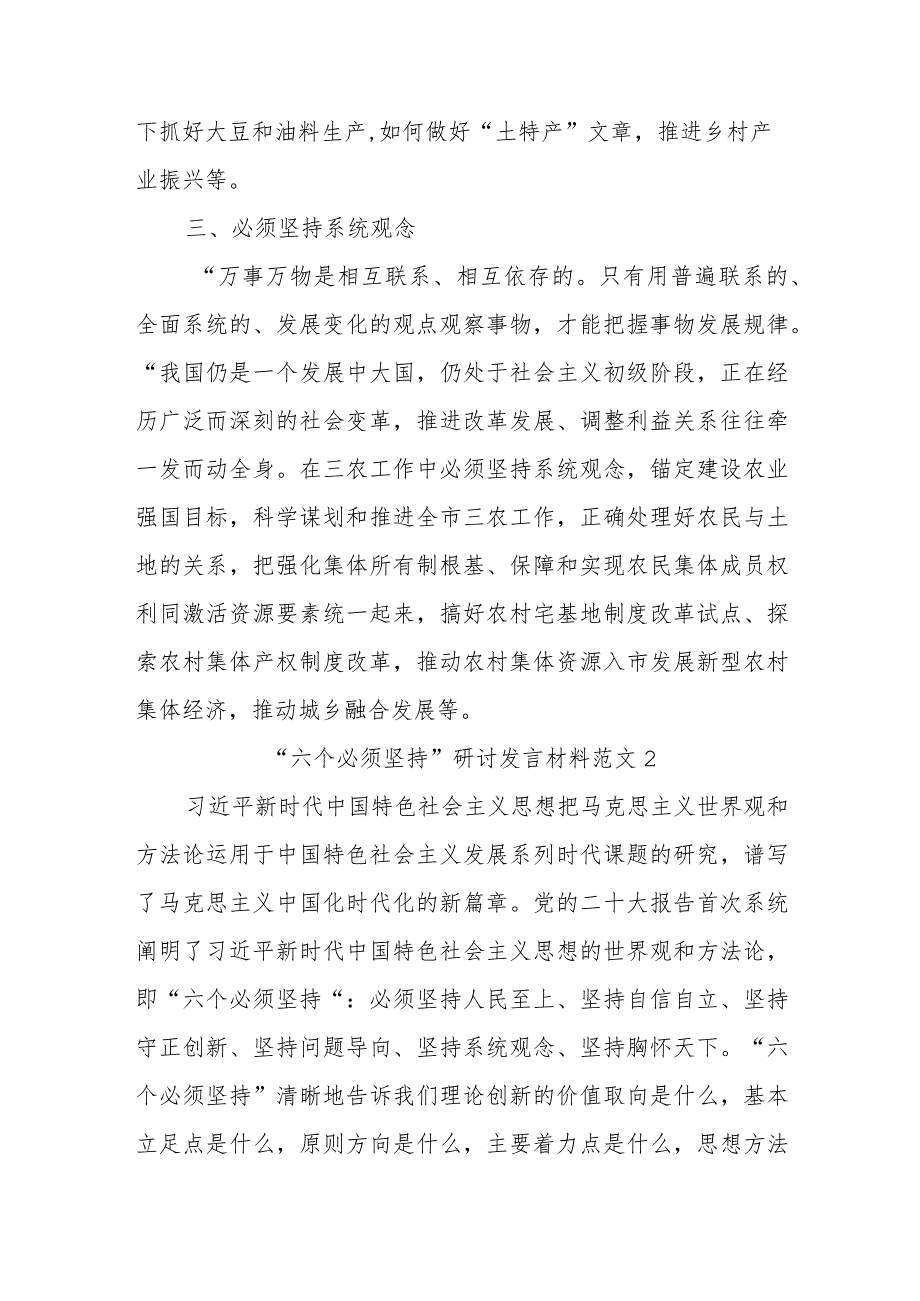 下抓好大豆和油料生产,如何做好“土特产”文章，推进乡村产
业振兴等。
三、必须坚持系统观念
“万事万物是相互联系、相互依存的。只有用普遍联系的、
全面系统的、发展变化的观点观察事物，才能把握事物发展规律。
“我国仍是一个发展中大国，仍处于社会主义初级阶段，正在经
历广泛而深刻的社会变革，推进改革发展、调整利益关系往往牵
一发而动全身。在三农工作中必须坚持系统观念，锚定建设农业
强国目标，科学谋划和推进全市三农工作，正确处理好农民与土
地的关系，把强化集体所有制根基、保障和实现农民集体成员权
利同激活资源要素统一起来，搞好农村宅基地制度改革试点、探
索农村集体产权制度改革，推动农村集体资源入市发展新型农村
集体经济，推动城乡融合发展等。
“六个必须坚持”研讨发言材料范文2
习近平新时代中国特色社会主义思想把马克思主义世界观和
方法论运用于中国特色社会主义发展系列时代课题的研究，谱写
了马克思主义中国化时代化的新篇章。党的二十大报告首次系统
阐明了习近平新时代中国特色社会主义思想的世界观和方法论，
即“六个必须坚持“：必须坚持人民至上、坚持自信自立、坚持
守正创新、坚持问题导向、坚持系统观念、坚持胸怀天下。“六
个必须坚持”清晰地告诉我们理论创新的价值取向是什么，基本
立足点是什么，原则方向是什么，主要着力点是什么，思想方法